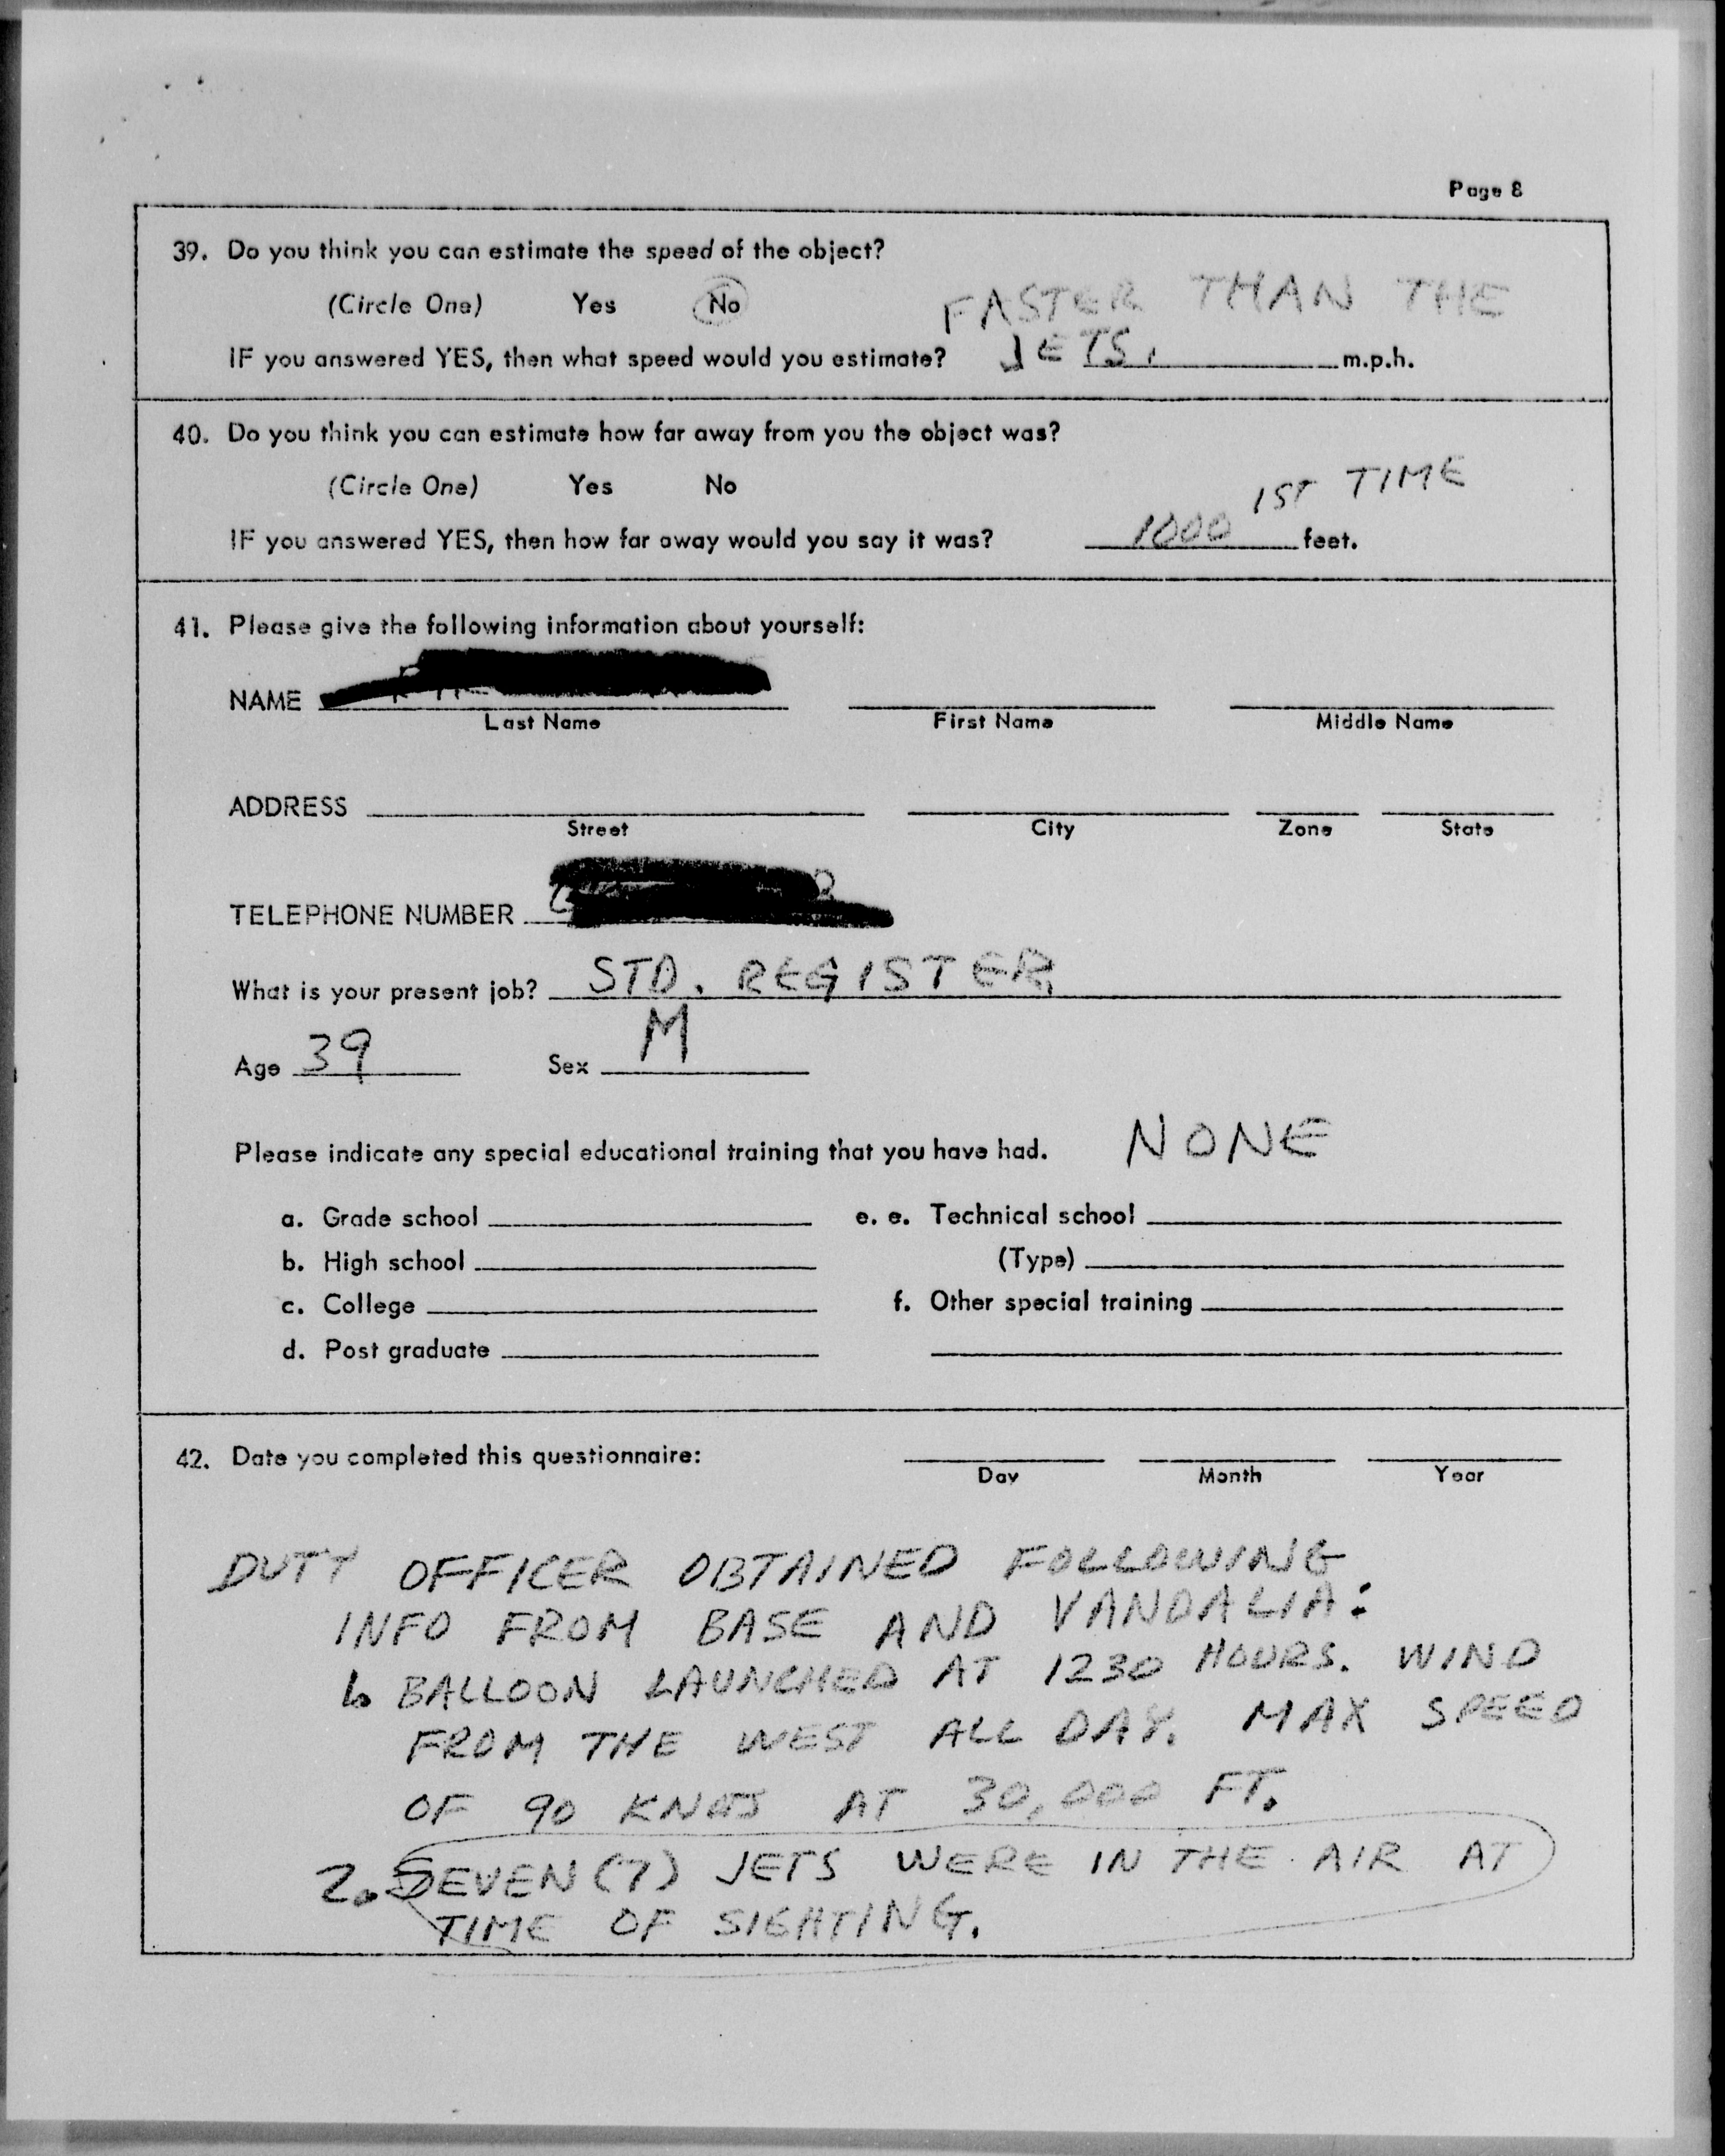 Page 8
39. Do you think you can estimate the speed of the object?
(Circle One) Yes No
FASTER THAN THE
IF you answered YES, then what speed would you estimate? JETS. m.p.h.
40. Do you think you can estimate how far away from you the object was?
(Circle One) Yes No
1ST TIME
IF you answered YES, then how far away would you say it was? 1000 feet.
41. Please give the following information about yourself:
NAME
Last Name First Name Middle Name
ADDRESS
Street City Zone State
TELEPHONE NUMBER
What is your present job? STD. REGISTER
Age 39 Sex M
Please indicate any special educational training that you have had. NONE
a. Grade school e. e. Technical school
b. High school (Type)
c. College f. Other special training
d. Post graduate
42. Date you completed this questionnaire:
Day Month Year
DUTY OFFICER OBTAINED FOLLOWING
INFO FROM BASE AND VANDALIA:
1. BALLOON LAUNCHED AT 1230 HOURS. WIND
FROM THE WEST ALL DAY. MAX SPEED
OF 90 KNOTS AT 30,000 FT.
2. SEVEN (7) JETS WERE IN THE AIR AT
TIME OF SIGHTING.